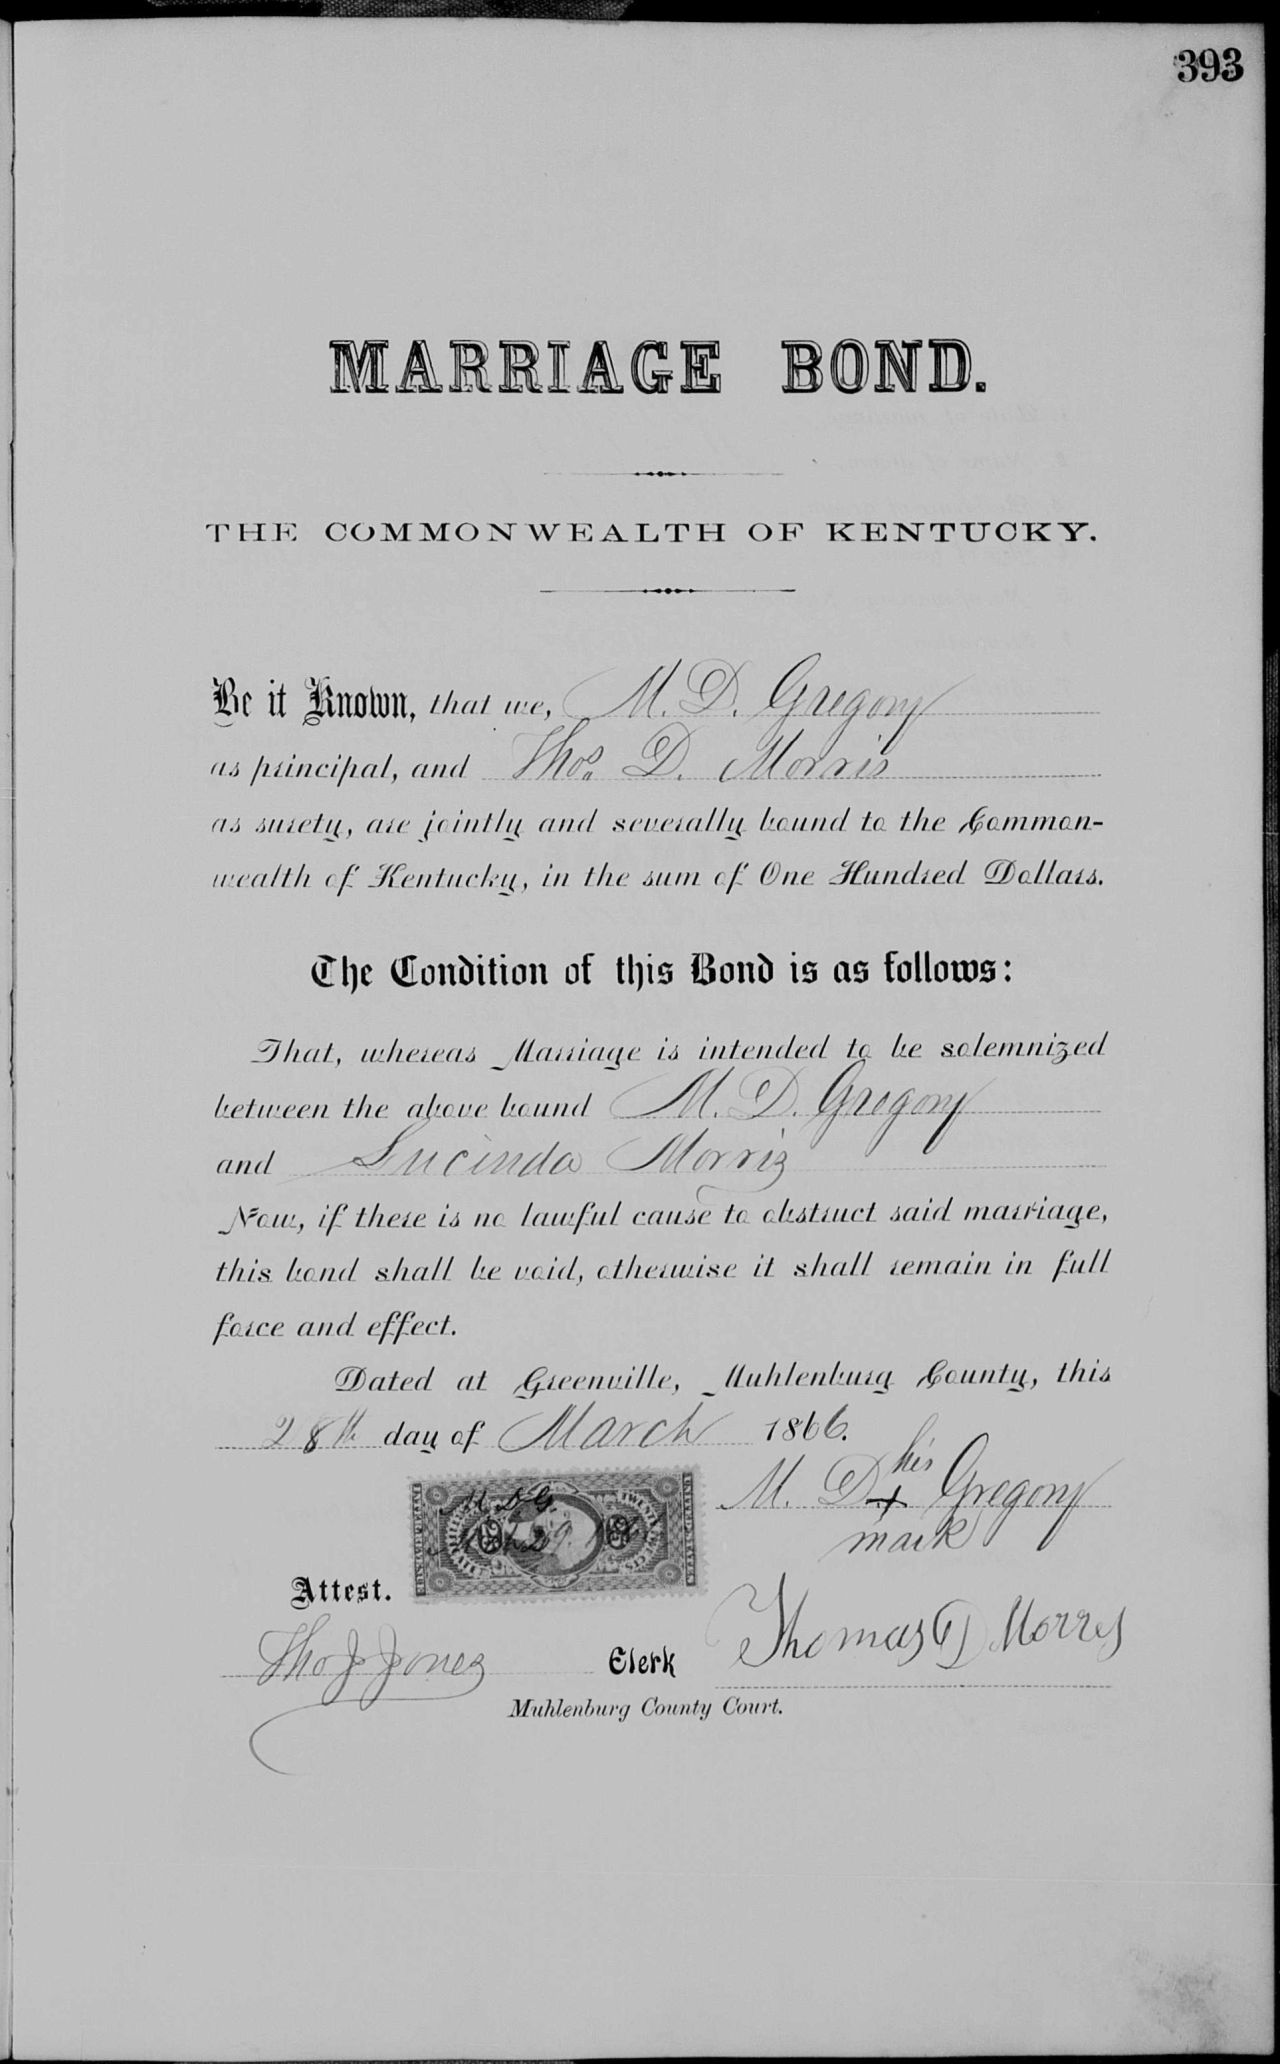 393
MARRIAGE BOND.
THE COMMONWEALTH OF KENTUCKY.
Be it Known, that we, M. D. Gregory
as principal, and Thos. D. Morris
as surety, are jointly and severally bound to the Common-
wealth of Kentucky, in the sum of One Hundred Dollars.
The Condition of this Bond is as follows:
That, whereas Marriage is intended to be solemnized
between the above bound M. D. Gregory
and Lucinda Morris
Now, if there is no lawful cause to obstruct said marriage,
this bond shall be void, otherwise it shall remain in full
force and effect.
Dated at Greenville, Muhlenburg County, this
28th day of March 1866.
his
M. D. + Gregory
mark
M. D. G.
Attest.
Tho J Jones Clerk Thomas D Morres
Muhlenburg County Court.